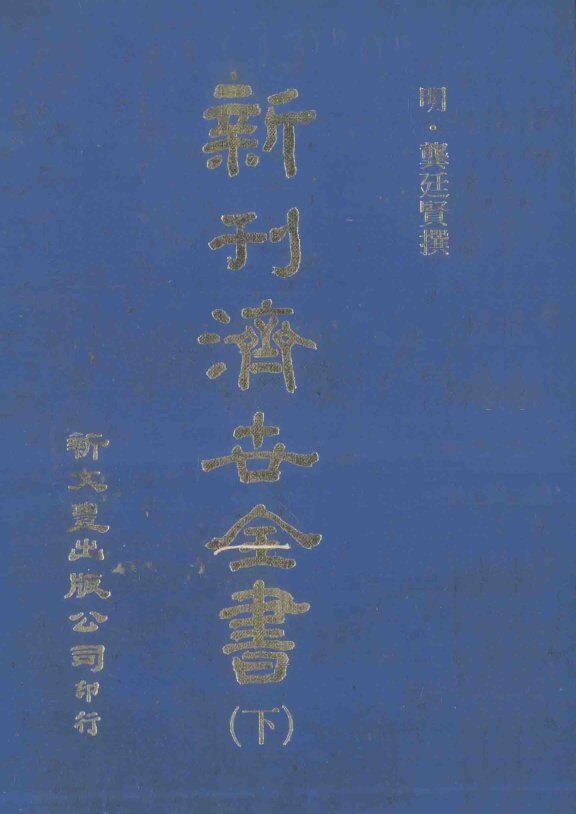 明·龔廷賢撰
新刊濟世全書(下)
新文豐出版公司印行